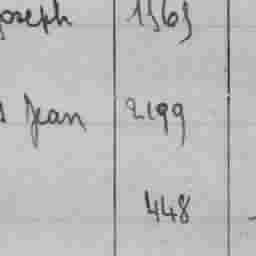 Joseph 1565
Jean 2199
448